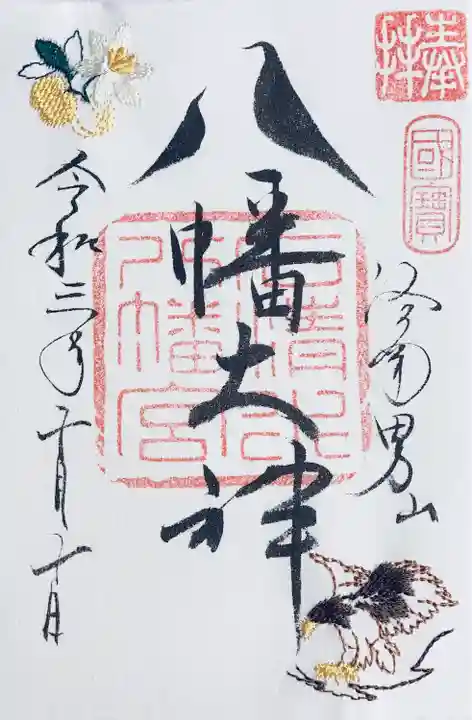 奉拝
國寶
洛南男山
八幡大神
石清水八幡宮
令和三年十月十日